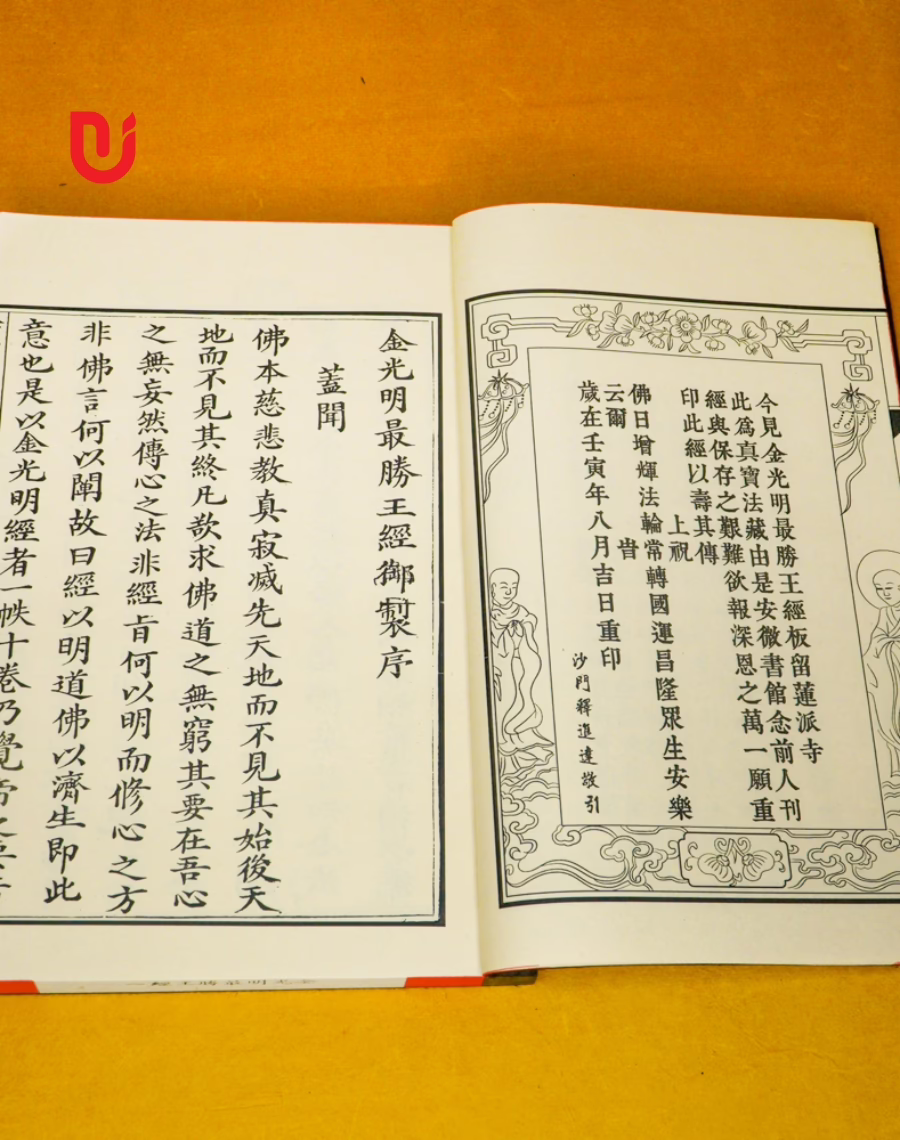 今見金光明最勝王經板留蓮派寺
此爲真寶法藏由是安微書館念前人刊
經與保存之艱難欲報深恩之萬一願重
印此經以壽其傳
上祝
佛日增輝法輪常轉國運昌隆眾生安樂
云爾 旹
歲在壬寅年八月吉日重印
沙門釋進達敬引
金光明最勝王經御製序
蓋聞
佛本慈悲教真寂滅先天地而不見其始後天
地而不見其終凡欲求佛道之無窮其要在吾心
之無妄然傳心之法非經㫖何以明而修心之方
非佛言何以闡故曰經以明道佛以濟生即此
意也是以金光明經者一帙十卷乃覺